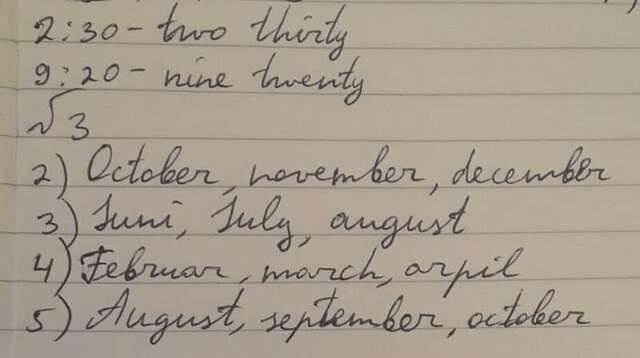 2:30 - two thirty
9:20 - nine twenty
√3
2) October, november, december
3) Juni, July, august
4) Februar, march, arpil
5) August, september, october